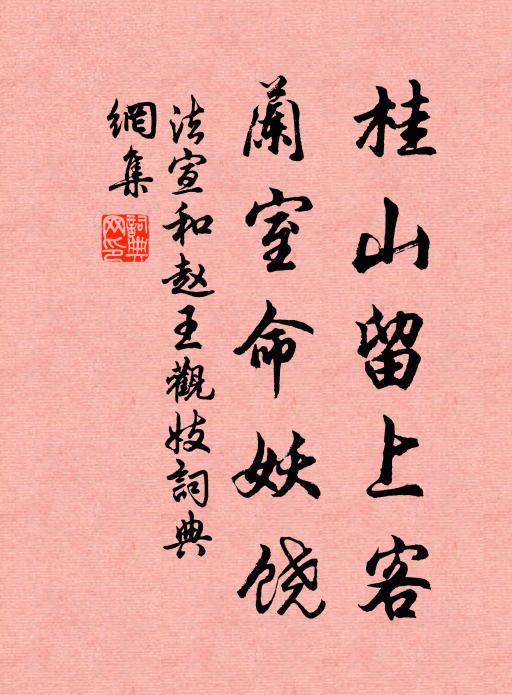 桂山留上客
蘭室命妖饶
法宣和赵王觀妓詞典
網集
詞典
网印